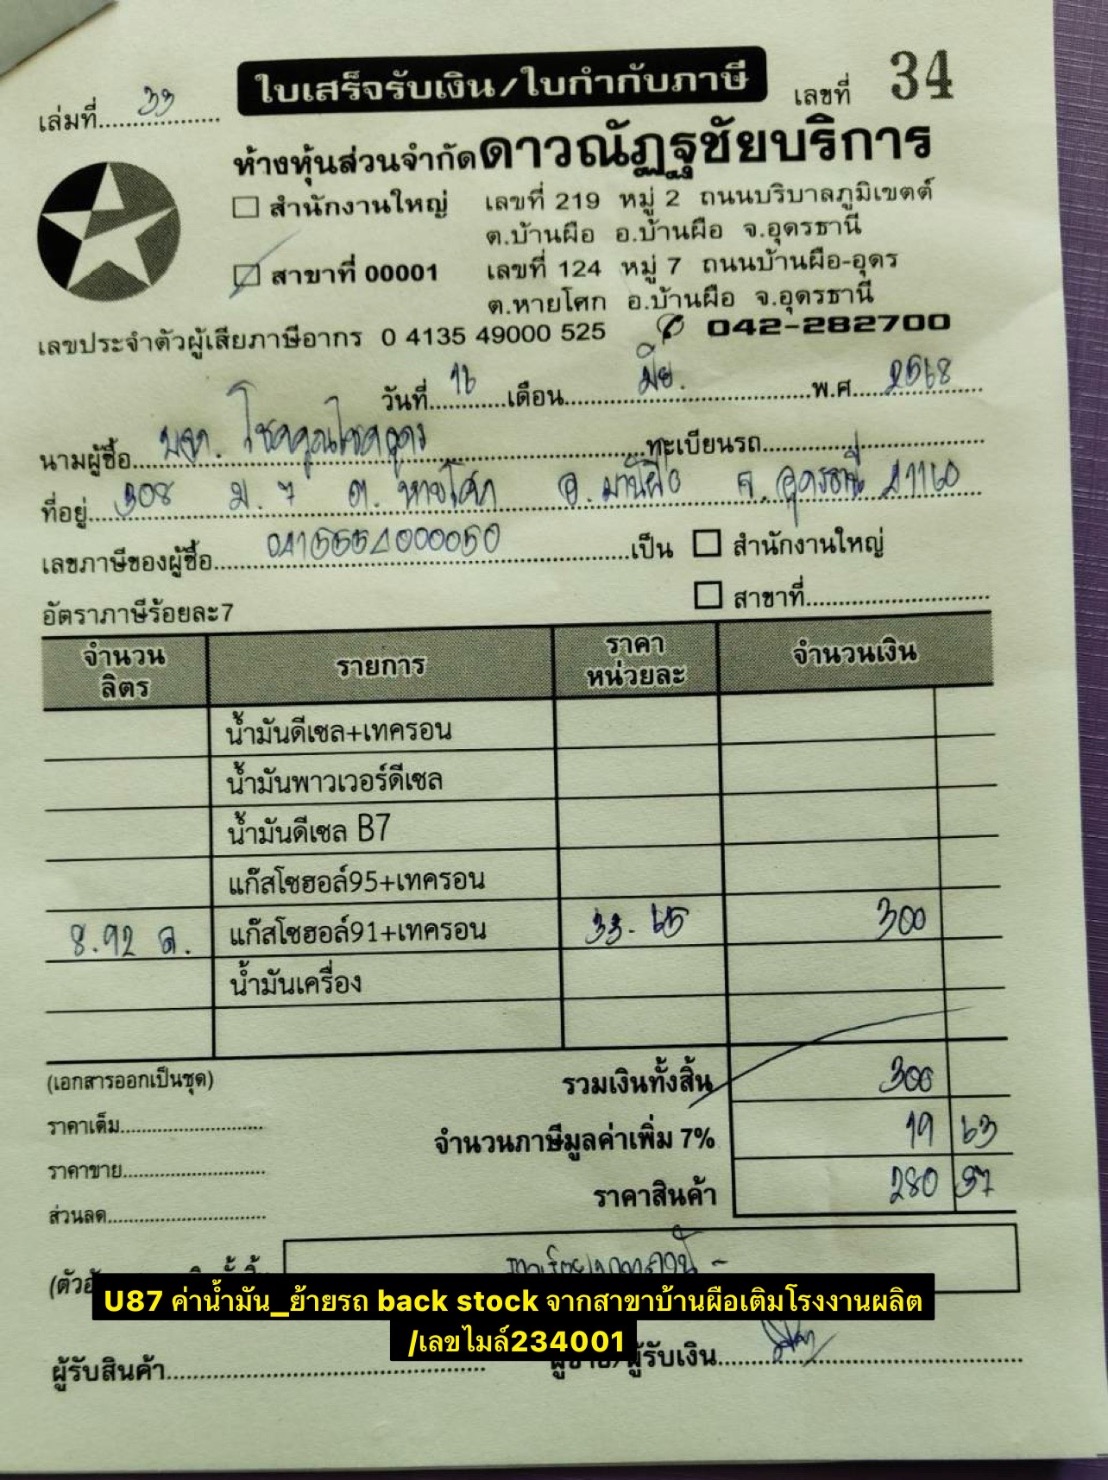 ใบเสร็จรับเงิน/ใบกำกับภาษี
เล่มที่ 33 เลขที่ 34
ห้างหุ้นส่วนจำกัดดาวณัฏฐชัยบริการ
สำนักงานใหญ่ เลขที่ 219 หมู่ 2 ถนนบริบาลภูมิเขตต์
ต.บ้านผือ อ.บ้านผือ จ.อุดรธานี
สาขาที่ 00001 เลขที่ 124 หมู่ 7 ถนนบ้านผือ-อุดร
ต.หายโศก อ.บ้านผือ จ.อุดรธานี
เลขประจำตัวผู้เสียภาษีอากร 0 4135 49000 525 ✆ 042-282700
วันที่ 16 เดือน มิย. พ.ศ. 2568
นามผู้ซื้อ บจก. โชคคูณโชคอุดร ทะเบียนรถ
ที่อยู่ 308 ม. 7 ต. หายโศก อ. บ้านผือ จ. อุดรธานี 41160
เลขภาษีของผู้ซื้อ เป็น สำนักงานใหญ่
อัตราภาษีร้อยละ7 สาขาที่
จำนวนลิตร รายการ ราคาหน่วยละ จำนวนเงิน
น้ำมันดีเซล+เทครอน
น้ำมันพาวเวอร์ดีเซล
น้ำมันดีเซล B7
แก๊สโซฮอล์95+เทครอน
8.92 ล. แก๊สโซฮอล์91+เทครอน 33.65 300
น้ำมันเครื่อง
(เอกสารออกเป็นชุด) รวมเงินทั้งสิ้น 300
ราคาเต็ม จำนวนภาษีมูลค่าเพิ่ม 7% 19 63
ราคาขาย ราคาสินค้า 280 37
ส่วนลด
U87 ค่าน้ำมัน_ย้ายรถ back stock จากสาขาบ้านผือเติมโรงงานผลิต
/เลขไมล์234001
ผู้รับสินค้า ผู้รับเงิน